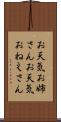 お天気お姉
さんお天気
おねえさん